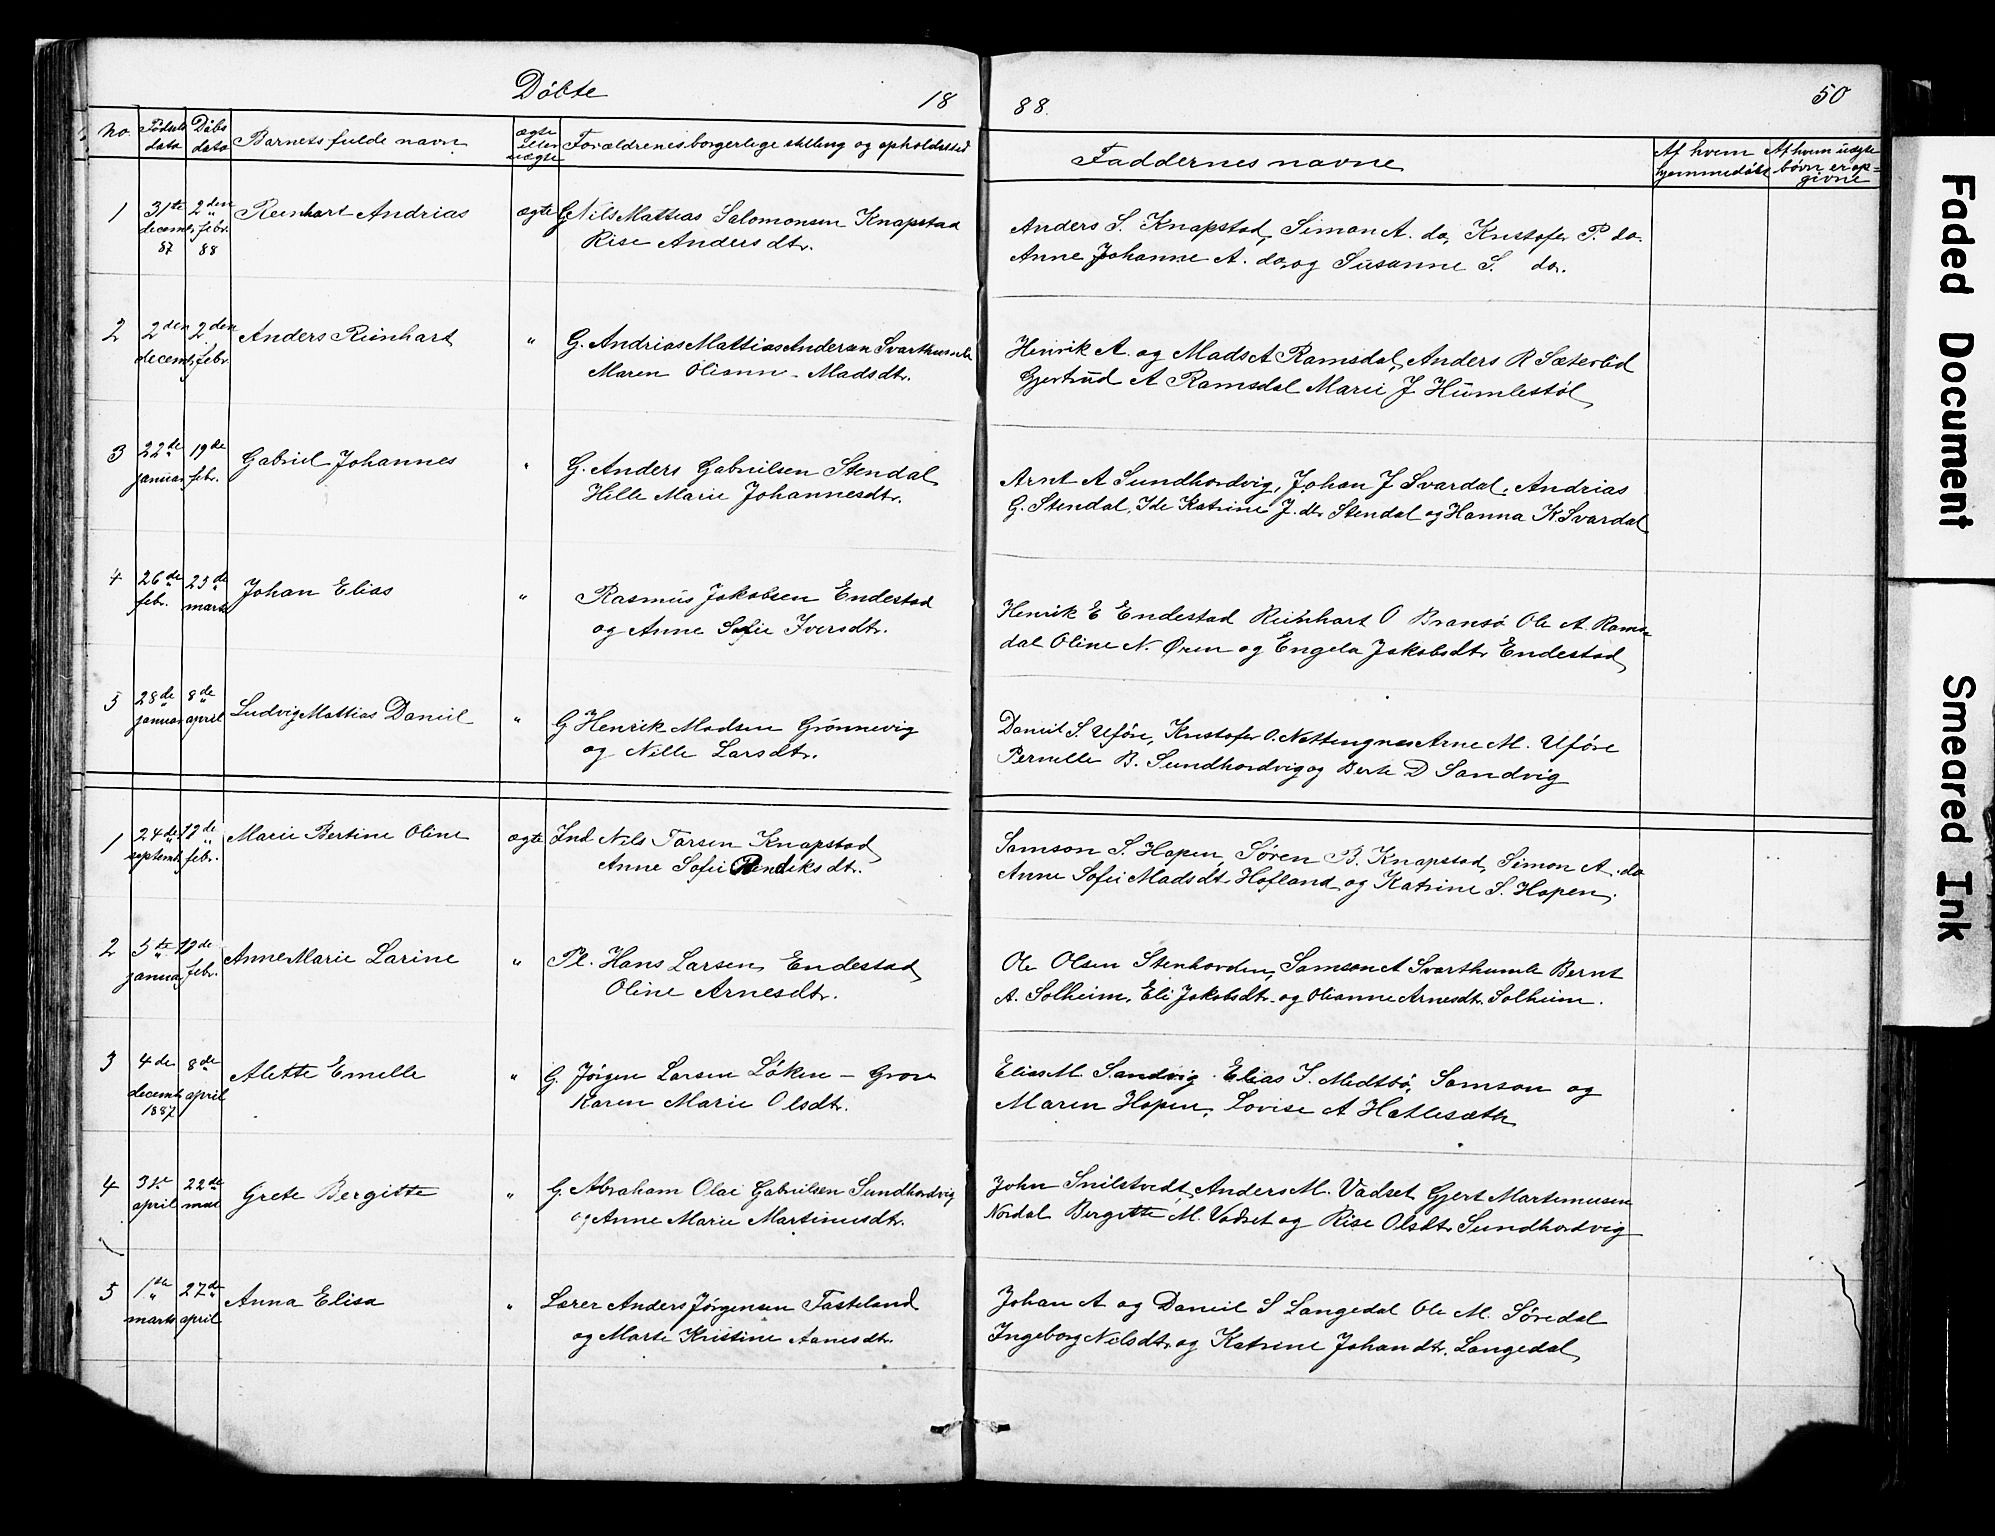 Døbte 18 88. 50
No. Fødsels dato Dåbs dato Barnets fulde navn ægte eller uægte Forældrenes borgerlige stilling og opholdssted Faddernes navne Af hvem hjemmedøbt Af hvem uægte børn er op- givne
1 31te decemb. 87 2den febr. 88 Reinhart Andrias ægte G Nils Mattias Salomonsen Knapstad Anders S. Knapstad, Simon A. do, Kristofer P. do.
Rise Andersdtr. Anne Johanne A. do, og Susanne S. do.
2 2den decemb. 2den febr. Anders Reinhart " G. Andrias Mattias Andersen Svarthumle Henrik A. og Mads A Ramsdal, Anders R Sæterlid
Maren Oliann Madsdtr. Gjertrud A Ramsdal Marie J Humlestøl
3 22de januar 19de febr. Gabriel Johannes " G. Anders Gabrielsen Stendal Arnt A Sundhordvig, Johan J Svardal, Andrias
Hille Marie Johannesdtr. G. Stendal, Ide Katrine J. dtr Stendal og Hanna K Svardal
4 26de febr. 25de marts Johan Elias " Rasmus Jakobsen Endestad Henrik E Endestad Reinhart O Bransø Ole A. Rams-
og Anne Sofie Iversdtr. dal Oline N. Øren og Engela Jakobsdtr Endestad
5 28de januar 8de april Ludvig Mattias Daniel " G Henrik Madsen Grønnevig Daniel S. Uføre, Kristofer O. Nettengnes Arne M. Uføre
og Nille Larsdtr. Pernille B. Sundhordvig og Berte D Sandvig
1 24de septemb. 12de febr. Marie Bertine Oline ægte Ind Nils Torsen Knapstad Samson S. Hopen, Søren B. Knapstad, Simon A. do
Anne Sofie Bendiksdtr. Anne Sofie Madsdt. Hofland og Katrine S. Hopen.
2 5te januar 12de febr. Anne Marie Larine " Pl. Hans Larsen Endestad Ole Olsen Stenhovden, Samson A Svarthumle Bernt
Oline Arnesdtr. A. Solheim, Eli Jakobsdtr. og Olianne Arnesdtr. Solheim.
3 4de decemb. 1887 8de april Alette Emelle " G. Jørgen Larsen Løken – Grov Elias M. Sandvig. Elias J. Medtbø, Samson og
Karen Marie Olsdtr. Maren Hopen, Lovise A Hatlesæth
4 3die april 22de mai Grete Bergitte " G. Abraham Olai Gabrielsen Sundhordvig John Snilstvedt, Anders M. Vadset, Gjert Martinusen
og Anne Marie Martinusdtr. Nordal Bergitte M. Vadset og Rise Olsdtr Sundhordvig
5 1ste marts 27de april Anna Elisa " Lærer Anders Jørgensen Fasteland Johan A og Daniel S Langedal Ole M. Søredal
og Marte Kristine Aanesdtr. Ingeborg Nilsdtr. og Katrine Johandtr. Langedal
Faded Document
Smeared Ink